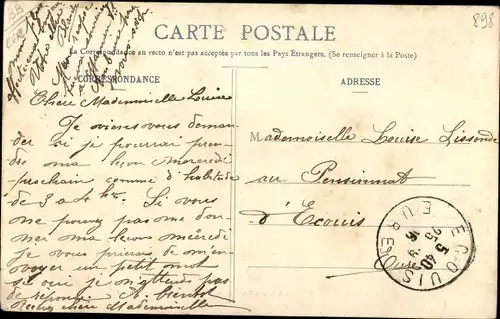 893
CARTE POSTALE
La Correspondance au recto n'est pas acceptée par tous les Pays Étrangers. (Se renseigner à la Poste)
CORRESPONDANCE
ADRESSE
Chère Mademoiselle Louise
Je viens vous deman-
der si je pourrai pren-
dre ma leçon Mercredi
prochain comme d'habitude
de 3 a 4 hr. Si vous
me pouvez pas me don-
ner ma leçon mercredi
je vous prierais de m'en-
voyer un petit mot
si oui je n'attends pas
de réponse. A bientot
chère Mademoiselle
Mademoiselle Louise Lissonde
au Pensionnat
d'Ecouis
Eure
ECOUIS
EURE
5 40